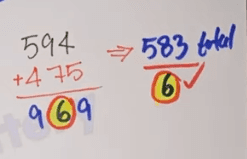 594 ⇒ 583 total
+475
969 6 ✓